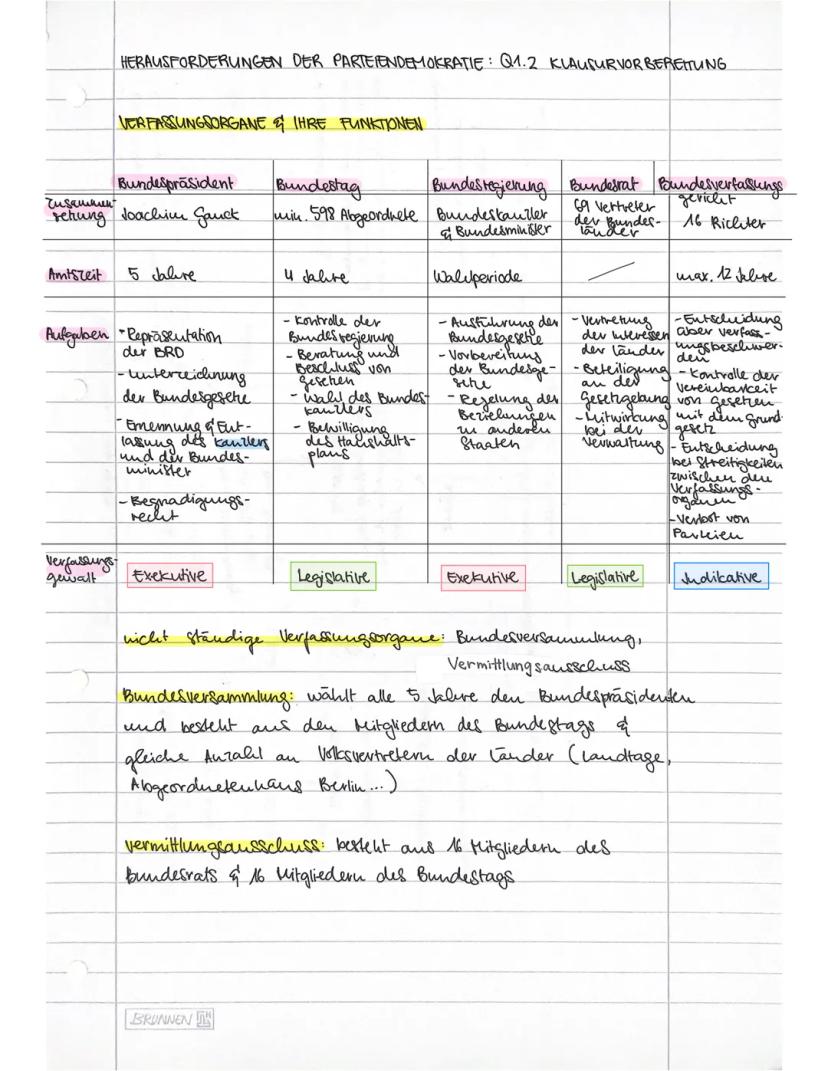 HERAUSFORDERUNGEN DER PARTEIENDEMOKRATIE: Q1.2 KLAUSURVORBEREITUNG
VERFASSUNGSORGANE & IHRE FUNKTIONEN
Bundespräsident
Bundestag
Bundesregierung
Bundesrat
Bundesverfassungs
gericht
Zusammen-
setzung
Joachim Gauck
min. 598 Abgeordnete
Bundeskanzler
& Bundesminister
69 Vertreter
der Bundes-
länder
16 Richter
Amtszeit
5 Jahre
4 Jahre
Wahlperiode
max. 12 Jahre
Aufgaben
- Repräsentation
der BRD
- Unterzeichnung
der Bundesgesetze
- Ernennung & Ent-
lassung des Kanzlers
und der Bundes-
minister
- Begnadigungs-
recht
- Kontrolle der
Bundesregierung
- Beratung und
Beschluss von
Gesetzen
- Wahl des Bundes-
kanzlers
- Bewilligung
des Haushalts-
plans
- Ausführung der
Bundesgesetze
- Vorbereitung
der Bundesge-
setze
- Regelung der
Beziehungen
zu anderen
Staaten
- Vertretung
der Interessen
der Länder
- Beteiligung
an der
Gesetzgebung
- Mitwirkung
bei der
Verwaltung
- Entscheidung
über verfass-
ungsbeschwer-
den
- Kontrolle der
Vereinbarkeit
von Gesetzen
mit dem Grund
gesetz
- Entscheidung
bei Streitigkeiten
zwischen den
Verfassungs-
organen
- Verbot von
Parteien
Verfassungs-
gewalt
Exekutive
Legislative
Exekutive
Legislative
Judikative
nicht ständige Verfassungsorgane: Bundesversammlung,
Vermittlungsausschuss
Bundesversammlung: wählt alle 5 Jahre den Bundespräsidenten
und besteht aus den Mitgliedern des Bundestags &
gleiche Anzahl an Volksvertretern der Länder (Landtage,
Abgeordnetenhaus Berlin...)
Vermittlungsausschuss: besteht aus 16 Mitgliedern des
Bundesrats & 16 Mitgliedern des Bundestags
BRUNNEN